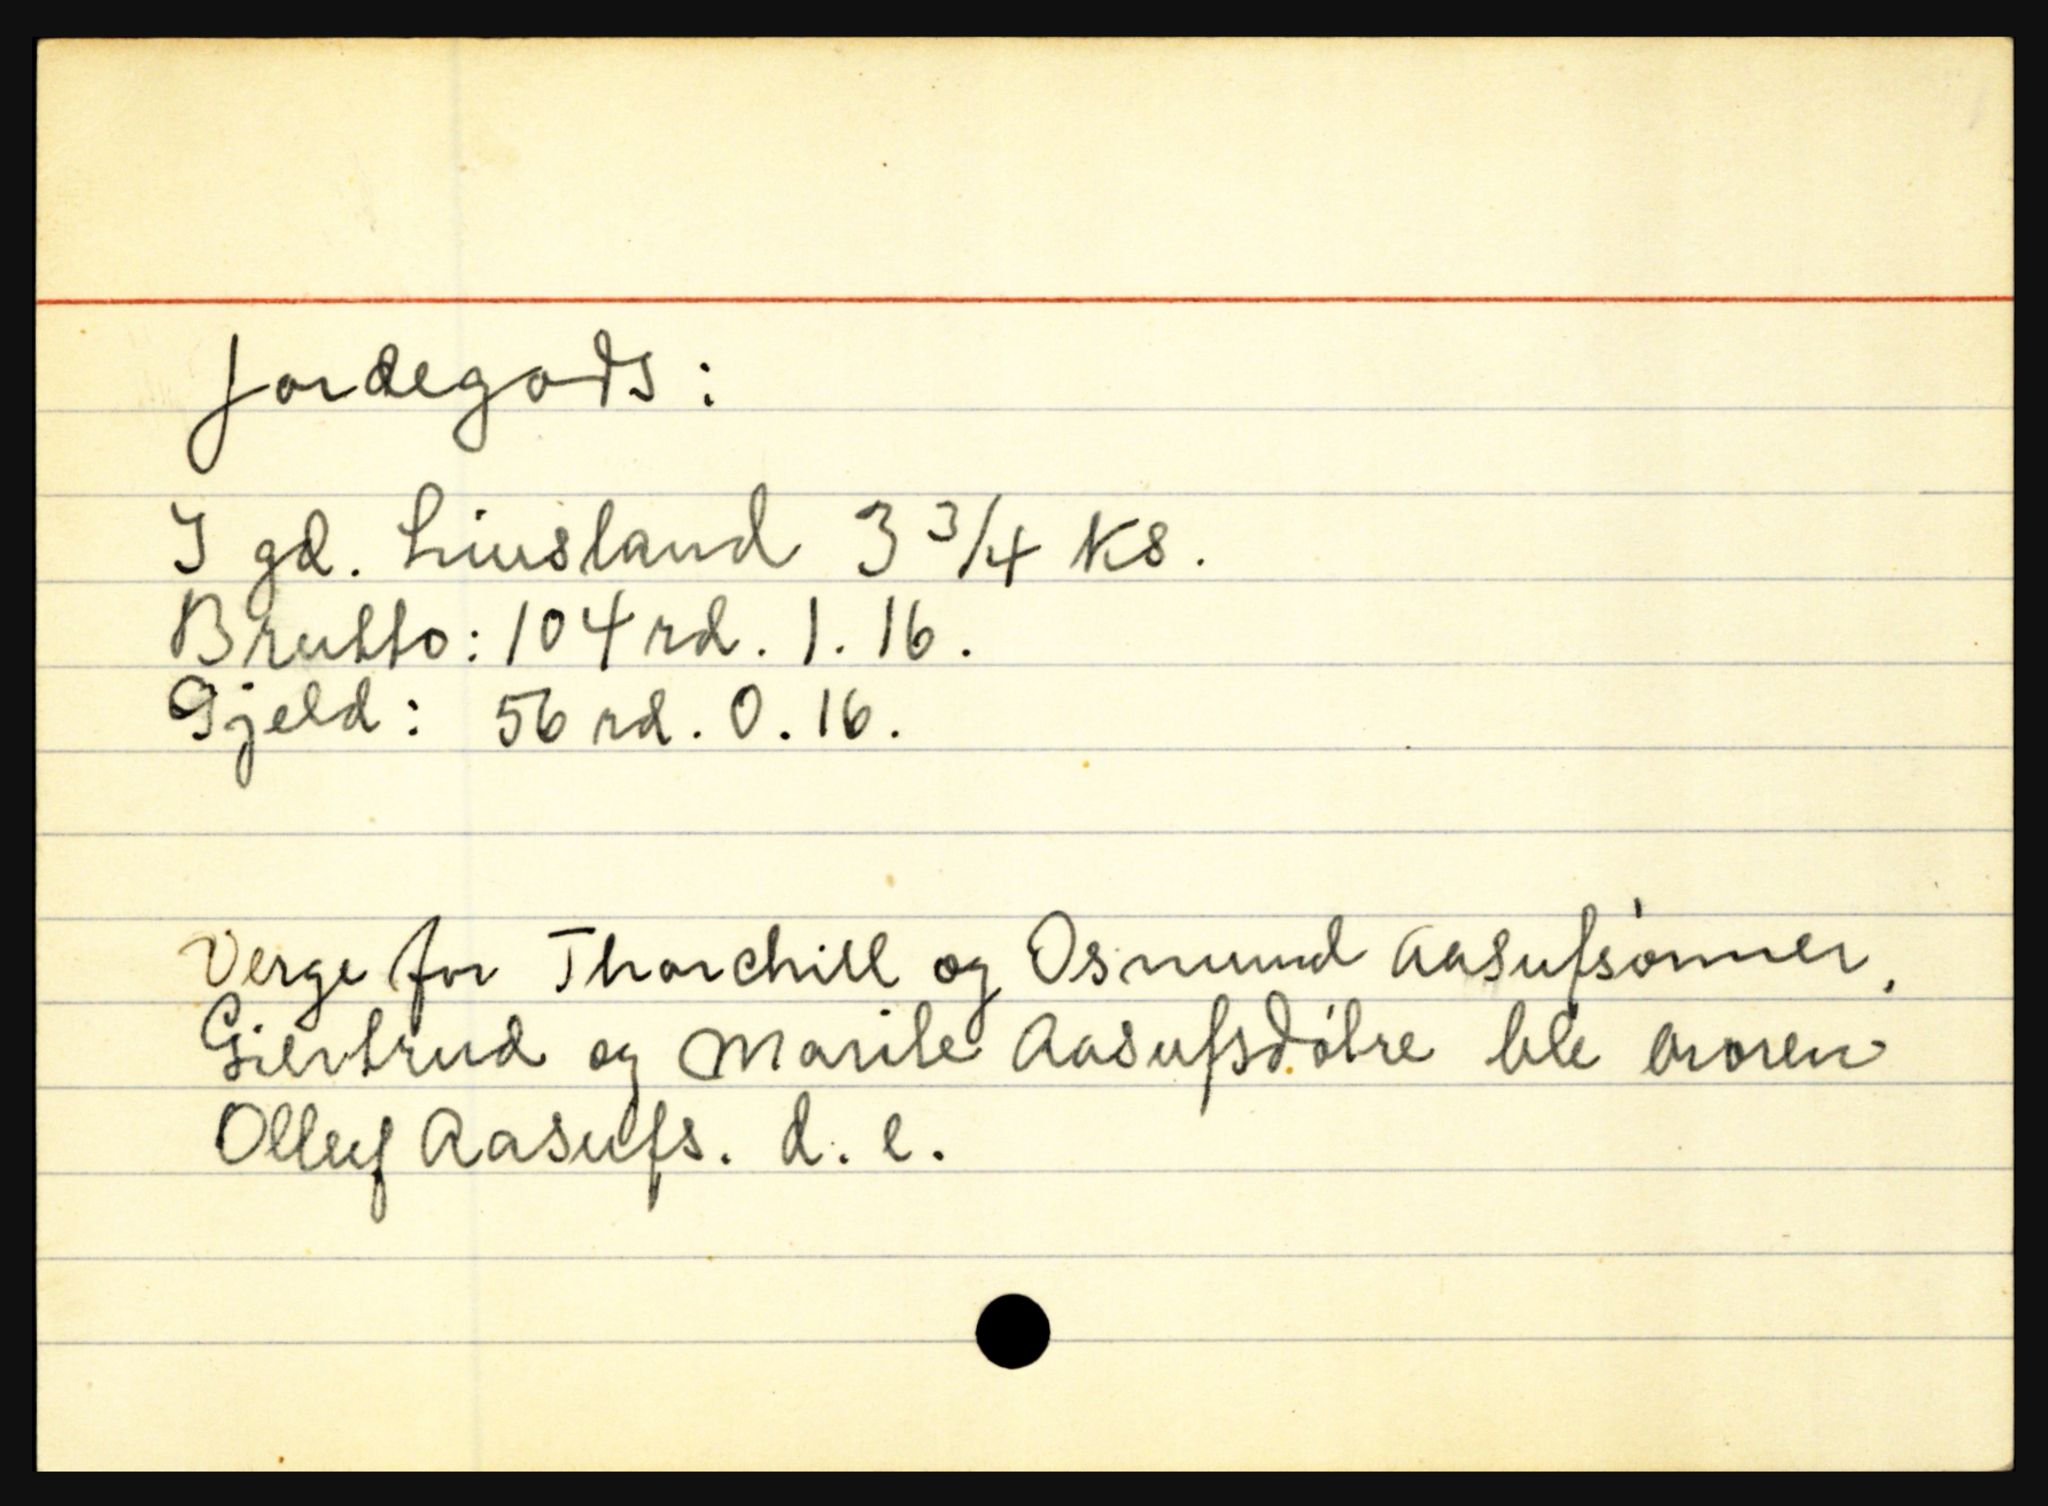 Jordegods:
I gd. Liusland 3 3/4 ks.
Brutto: 104 rd. 1. 16.
Gjeld: 56 rd. 0. 16.
Verge for Thorchill og Osmund Aasufsønner,
Giertrud og Marite Aasufsdøtre ble broren
Olluf Aasufs. d. e.